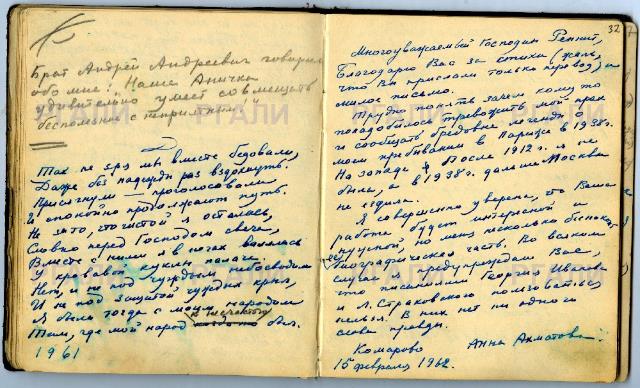 Брат Андрей Андреевич говорил
обо мне: "Наша Аничка
удивительно умеет совмещать
бесполезное с неприятным"
Так не зря мы вместе бедовали,
Даже без надежды раз вздохнуть.
Присягнули — проголосовали
И спокойно продолжали путь.
Не за то, что чистой я осталась,
Словно перед Господом свеча,
Вместе с ними я в ногах валялась
У кровавой куклы палача.
Нет, и не под чуждым небосводом
И не под защитой чуждых крыл,
Я была тогда с моим народом
Там, где мой народ к несчастью был.
1961
32
Многоуважаемый Господин Реннит,
Благодарю Вас за стихи (жаль,
что Вы прислали только перевод) и
милое письмо.
Трудно понять зачем кому то
понадобилось тревожить мой прах
и сообщать бредовые легенды о
моем пребывании в Париже в 1938г.
На западе я после 1912 г. я не
была, а в 1938г. дальше Москвы
не ездила.
Я совершенно уверена, что Ваша
работа будет интересной и
нужной, но меня несколько беспокоит
ее биографическая часть. Во всяком
случае предупреждаю Вас,
что писаниями Георгия Иванова
и Л. Страховского пользоваться
нельзя. В них нет ни одного
слова правды.
Комарово
Анна Ахматова
15 февраля 1962.
РГАЛИ
РГАЛИ
РГАЛИ
РГАЛИ